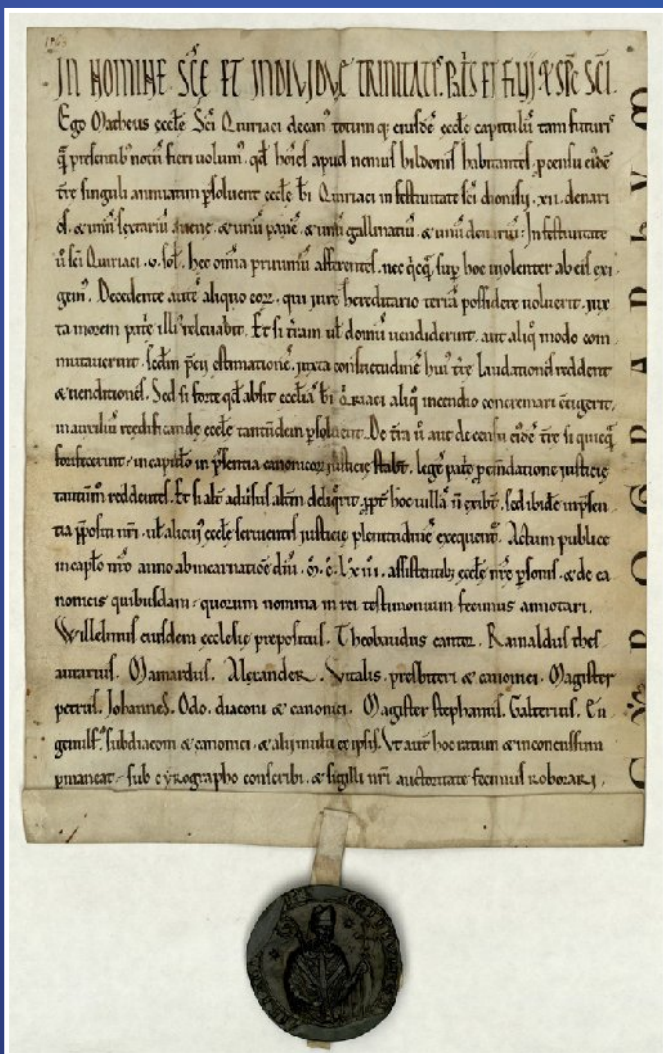 IN NOMINE SCE ET INDIVIDUE TRINITATIS. PATRIS ET FILII & SPC SCI.
Ego Matheus eccle Sci Quiriaci decan totum q; eiusde eccle capitulu tam futuri
q presentib notu fieri volum. qd hoies apud nemus bildonis habitantes. p censu eide
tre singuli annuatim psoluent eccle bi Quiriaci in festivitate sci dionisii. xii. denari
os. & unu sextariu avene. & unu pane. & unu gallinatiu. & unu denariu: In festivitate
u sci Quiriaci. v. sol. hec omia pruiniu afferentes. nec qcq sup hoc violenter ab eis exi
gem. Decedente aute aliquo eoz. qui jure hereditario terra possidere voluerit. jux
ta morem patie illi relevabit. Et si tram ul domu vendiderint. aut aliq modo com
mutaverint. sedm pcii estimatione. juxta consuetudine hui tre laudationes reddent
& venditiones. Sed si forte qd absit ecclia bi Qriaci aliq incendio concremari ctigerit.
in auxiliu reedificande eccle tantundem psoluent. De tra u aut de censu eide tre si quicq
forifecerint. in capitlo in psentia canonicoz justicie stabt. lege patie p emdatione justicie
tantum reddentes. Et si alt adusus altm deliqrit. ppt hoc villa n exibt. sed ibide in psen
tia ppositi nri. ul alicui eccle servientis justicie plenitudine exequent. Actum publice
in capto nro anno ab incarnatioe dni. M. C. LX iii. assistentib; eccle nre psonis. & de ca
nonicis quibusdam. quorum nomina in rei testimonium fecimus annotari.
Willelmus eiusdem ecclesie prepositus. Theobaudus cantor. Rainaldus thes
aurarius. Mainardus. Alexander. Vitalis. presbiteri & canonici. Magister
petrus. Johannes. Odo. diaconi & canonici. Magister stephanus. Galterius. Eu
genius. subdiaconi & canonici. & alii multi ex ipsis. Ut aut hoc ratum & inconcussum
pmaneat. sub cyrographo conscribi. & sigilli nri auctoritate fecimus roborari.
CYROGRAPHUM